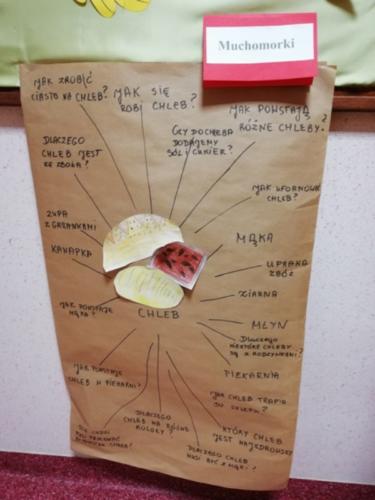 Muchomorki
JAK ZROBIĆ
CIASTO NA CHLEB?
JAK SIĘ
ROBI CHLEB?
JAK POWSTAJĄ
RÓŻNE CHLEBY?
CZY DO CHLEBA
DODAJEMY
SÓL I CUKIER?
DLACZEGO
CHLEB JEST
ZE ZBOŻA?
JAK UFORMOWAĆ
CHLEB?
ZUPA
Z GRZANKAMI
MĄKA
KANAPKA
UPRAWA
ZBÓŻ
ZIARNA
JAK POWSTAJE
MĄKA?
CHLEB
MŁYN
DLACZEGO
NIEKTÓRE CHLEBY
SĄ Z RODZYNKAMI?
PIEKARNIA
JAK POWSTAJE
CHLEB W PIEKARNI?
JAK CHLEB TRAFIA
DO SKLEPU?
DLACZEGO
CHLEB MA RÓŻNE
KOLORY?
KTÓRY CHLEB
JEST NAJZDROWSZY
DLACZEGO CHLEB
MUSI BYĆ Z MĄKI?